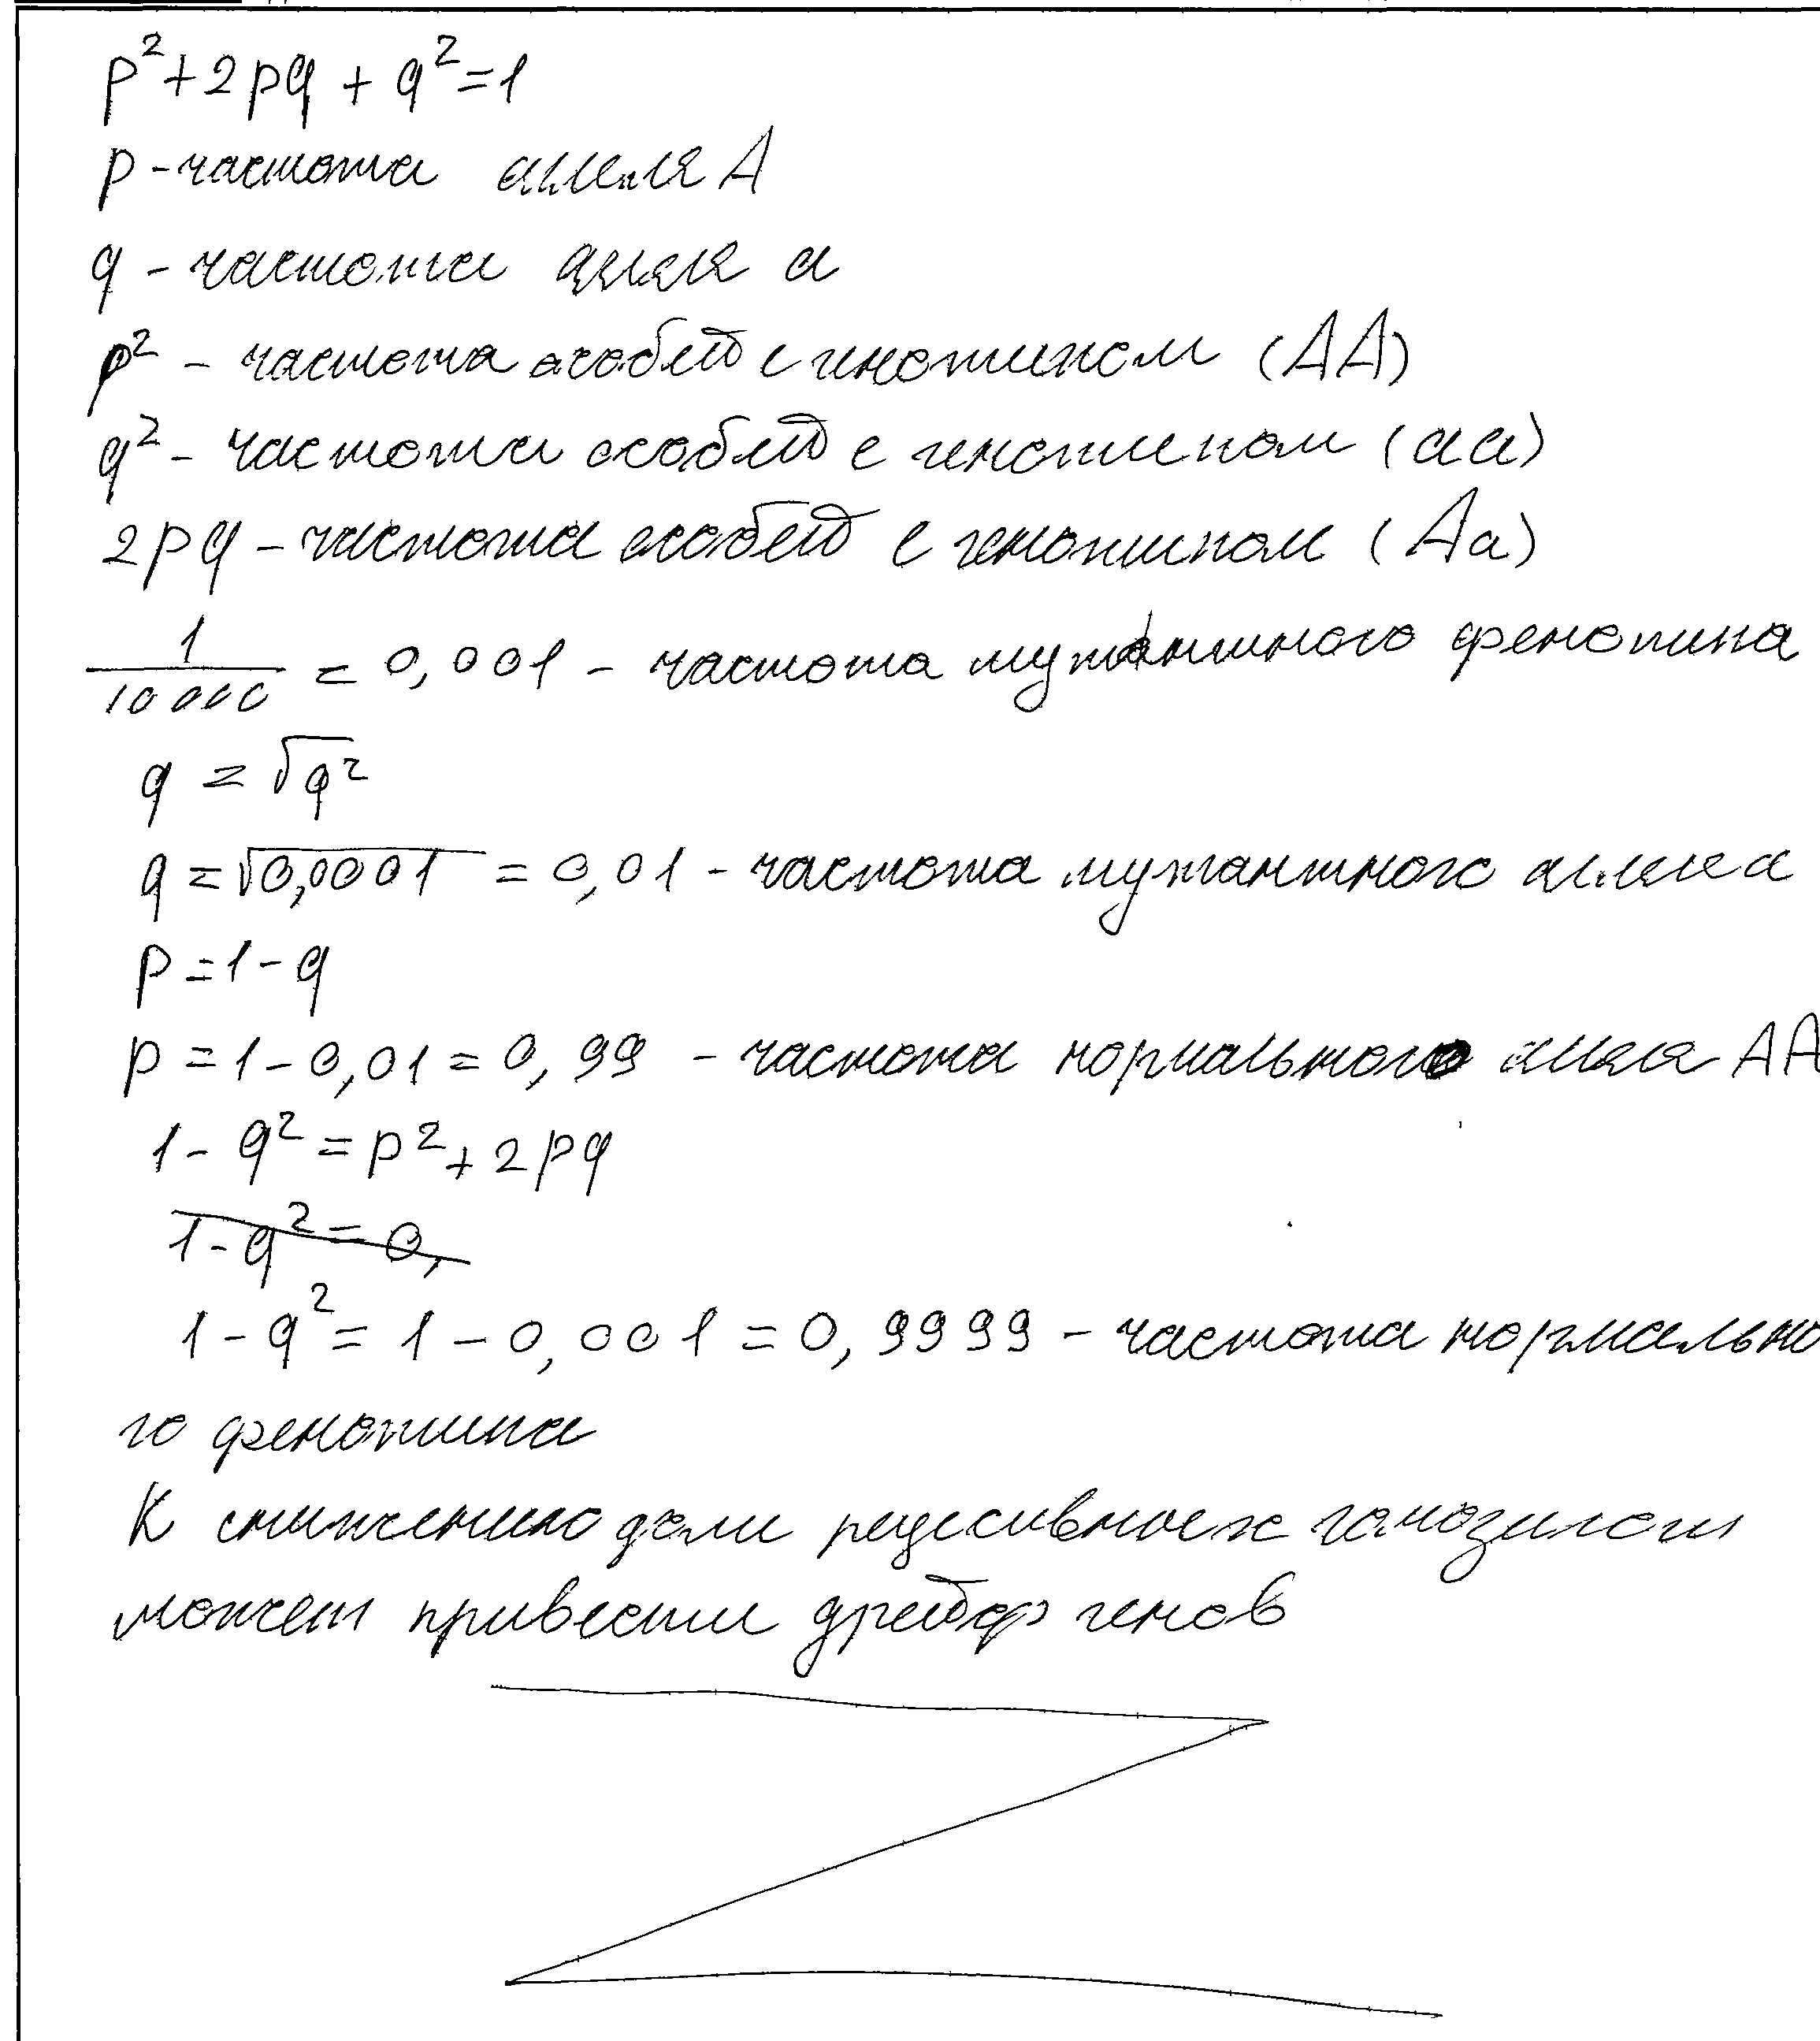 p²+2pq + q²=1
p-частота аллеля А
q - частота аллеля а
p² - частота особей с генотипом (АА)
q² - частота особей с генотипом (аа)
2pq - частота особей с генотипом (Аа)
1/10 000 = 0,001 - частота мутантного фенотипа
q = √q²
q = √0,0001 = 0,01 - частота мутантного аллеля
p=1-q
p =1-0,01=0,99 - частота нормального аллеля АА
1- q² = p²+2pq
1-q²=0,
1-q² = 1-0,001=0,9999 - частота нормально
го фенотипа
К снижению доли рецессивных гомозигот
может привести дрейф генов